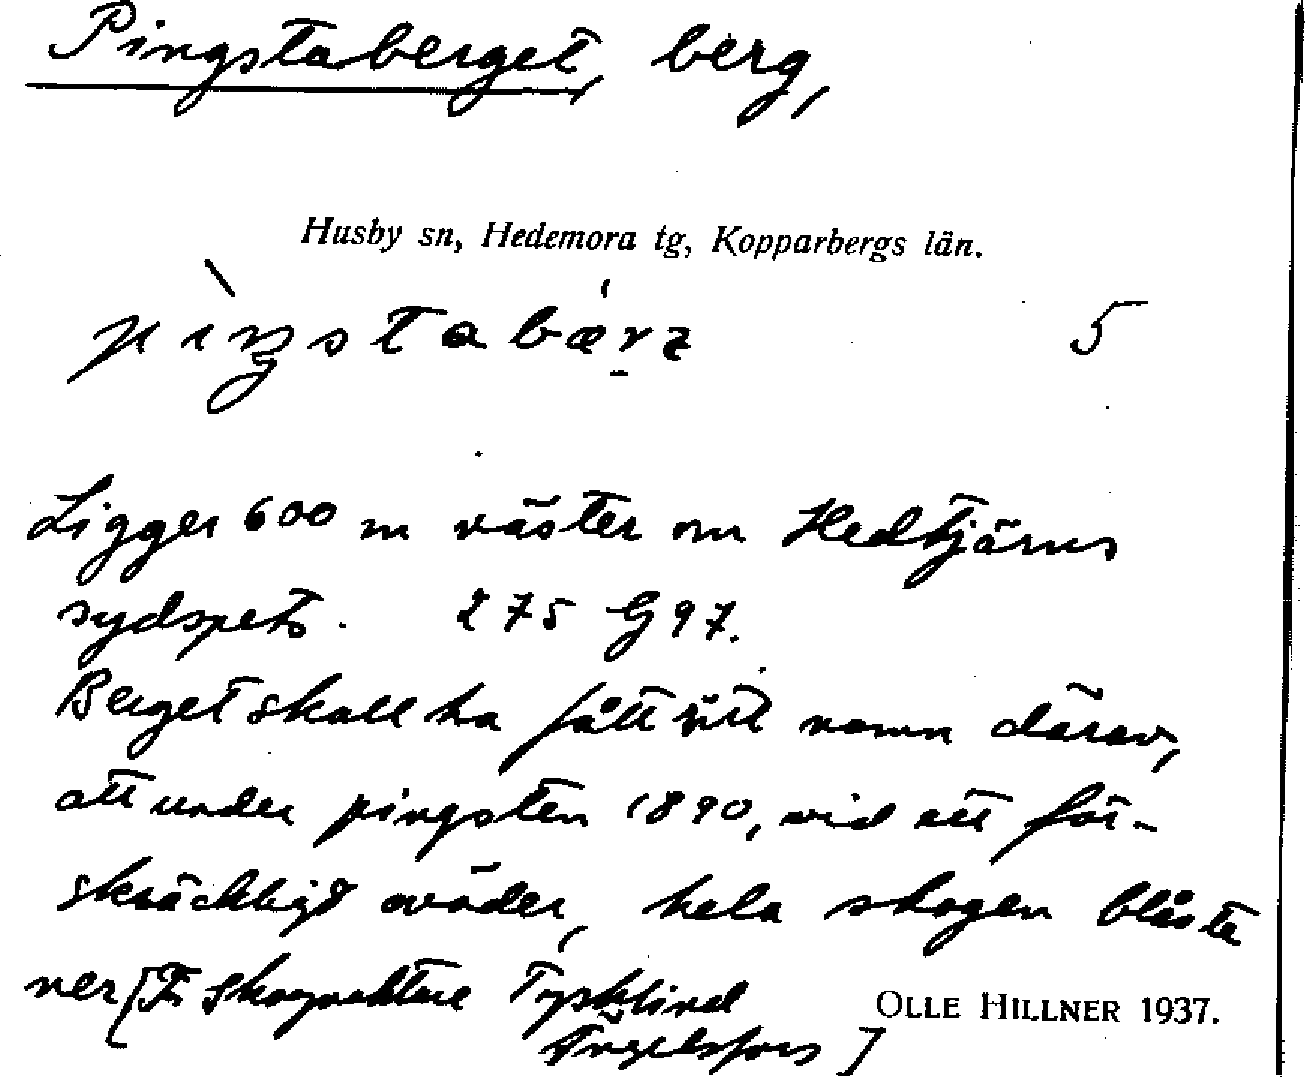 Pingstaberget, berg,
Husby sn, Hedemora tg, Kopparbergs län.
pìŋstabærʒ 5
Ligger 600 m väster om Hedtjärns
sydspets. 275 G97.
Berget skall ha fått sitt namn därav,
att under pingsten 1890, vid ett för-
skräckligt oväder, hela skogen blåste
ner [F. Skogvaktare Tysklind
OLLE HILLNER 1937.
Ängelsfors]